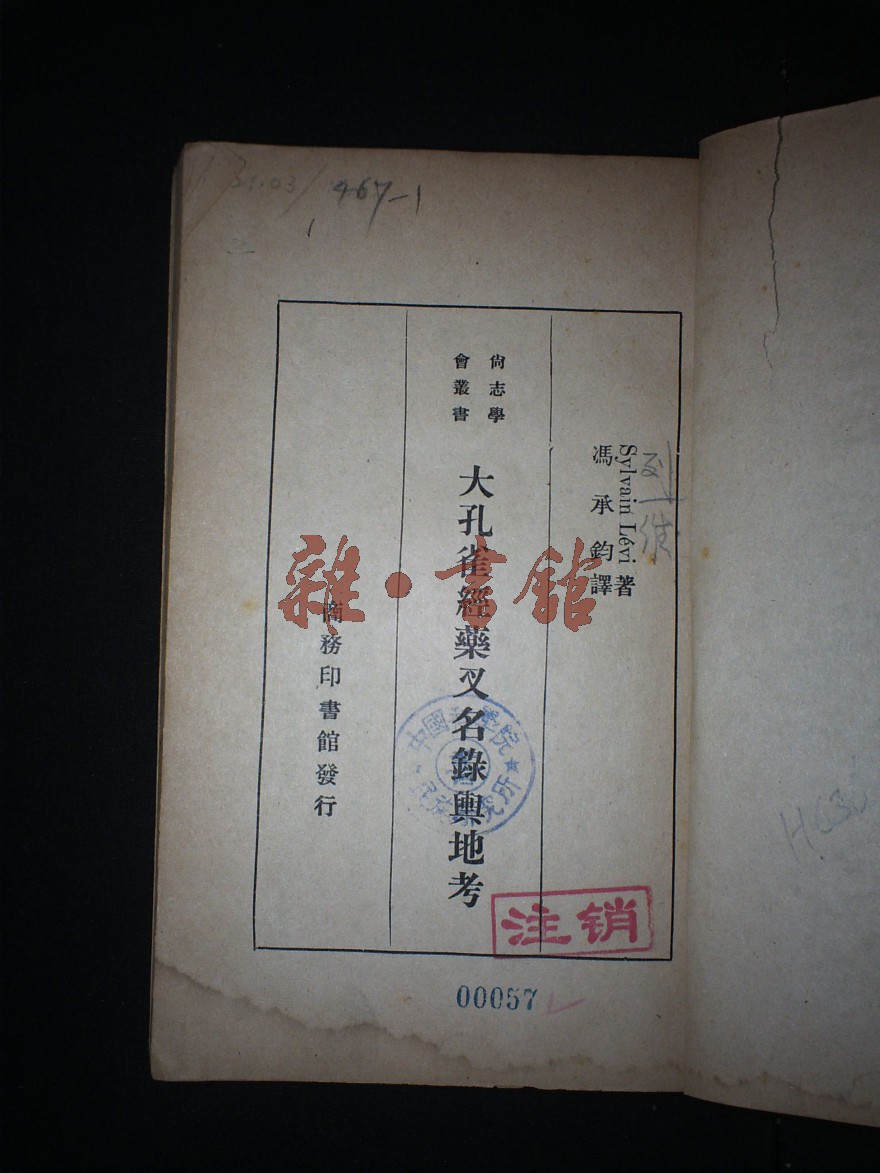 467-1
Sylvain Lévi 著
馮承鈞譯
尙志學
會叢書
大孔雀經藥叉名錄輿地考
商務印書館發行
雜·書館
中國科學院
民族研究所
注销
00057